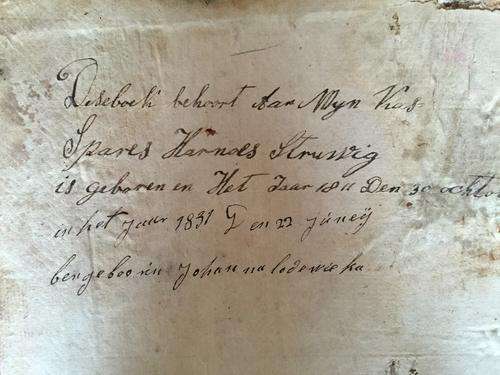 Deseboek behoort Aan Myn Kas
Spares Harnoes Struwig
is geboren en Het Jaar 1811 Den 30 ochto
in het Jaar 1831 Den 22 Júneÿ
ben geboorin Johanna lodewieka